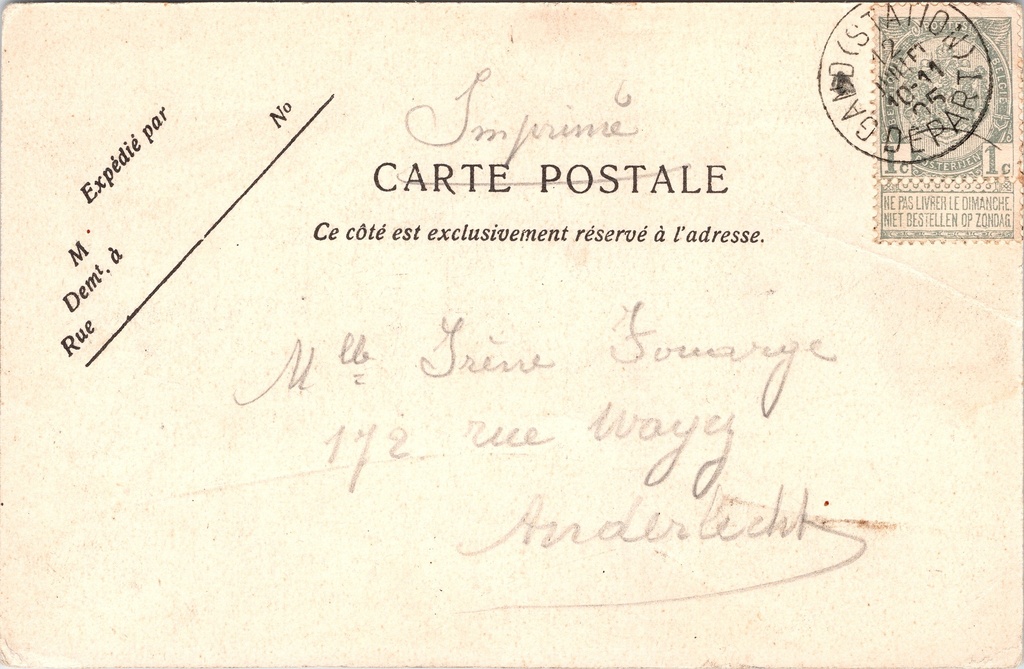 Imprimé
CARTE POSTALE
Ce côté est exclusivement réservé à l'adresse.
Expédié par
No
M
Demt. à
Rue
GAND (STATION)
12
10-11
05
DEPART
1c 1c
NE PAS LIVRER LE DIMANCHE
NIET BESTELLEN OP ZONDAG
Mlle Irène Fouarge
172 rue Wayez
Anderlecht